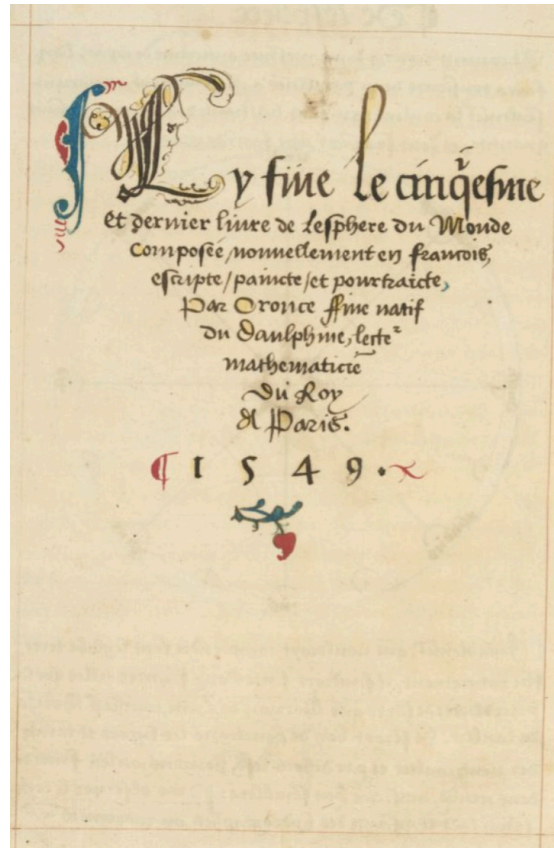 ¶ Cy fine le cinq̃esme
et dernier liure de lesphere du Monde
Composée/nouuellement en francois,
escripte/paincte/et pourtraicte,
Par Oronce ffine natif
du Daulphine, lecteʳ
mathematiciē
du Roy
A Paris.
¶ 1549.